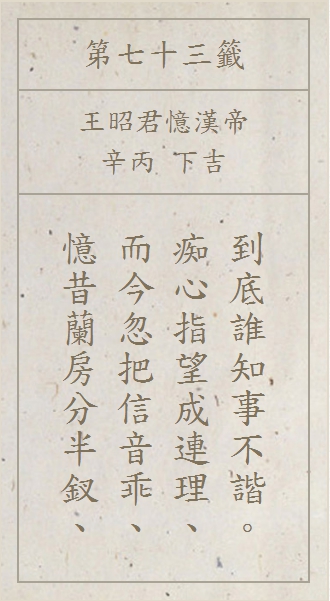 第七十三籤
王昭君憶漢帝
辛丙 下吉
憶昔蘭房分半釵、
而今忽把信音乖、
痴心指望成連理、
到底誰知事不諧。